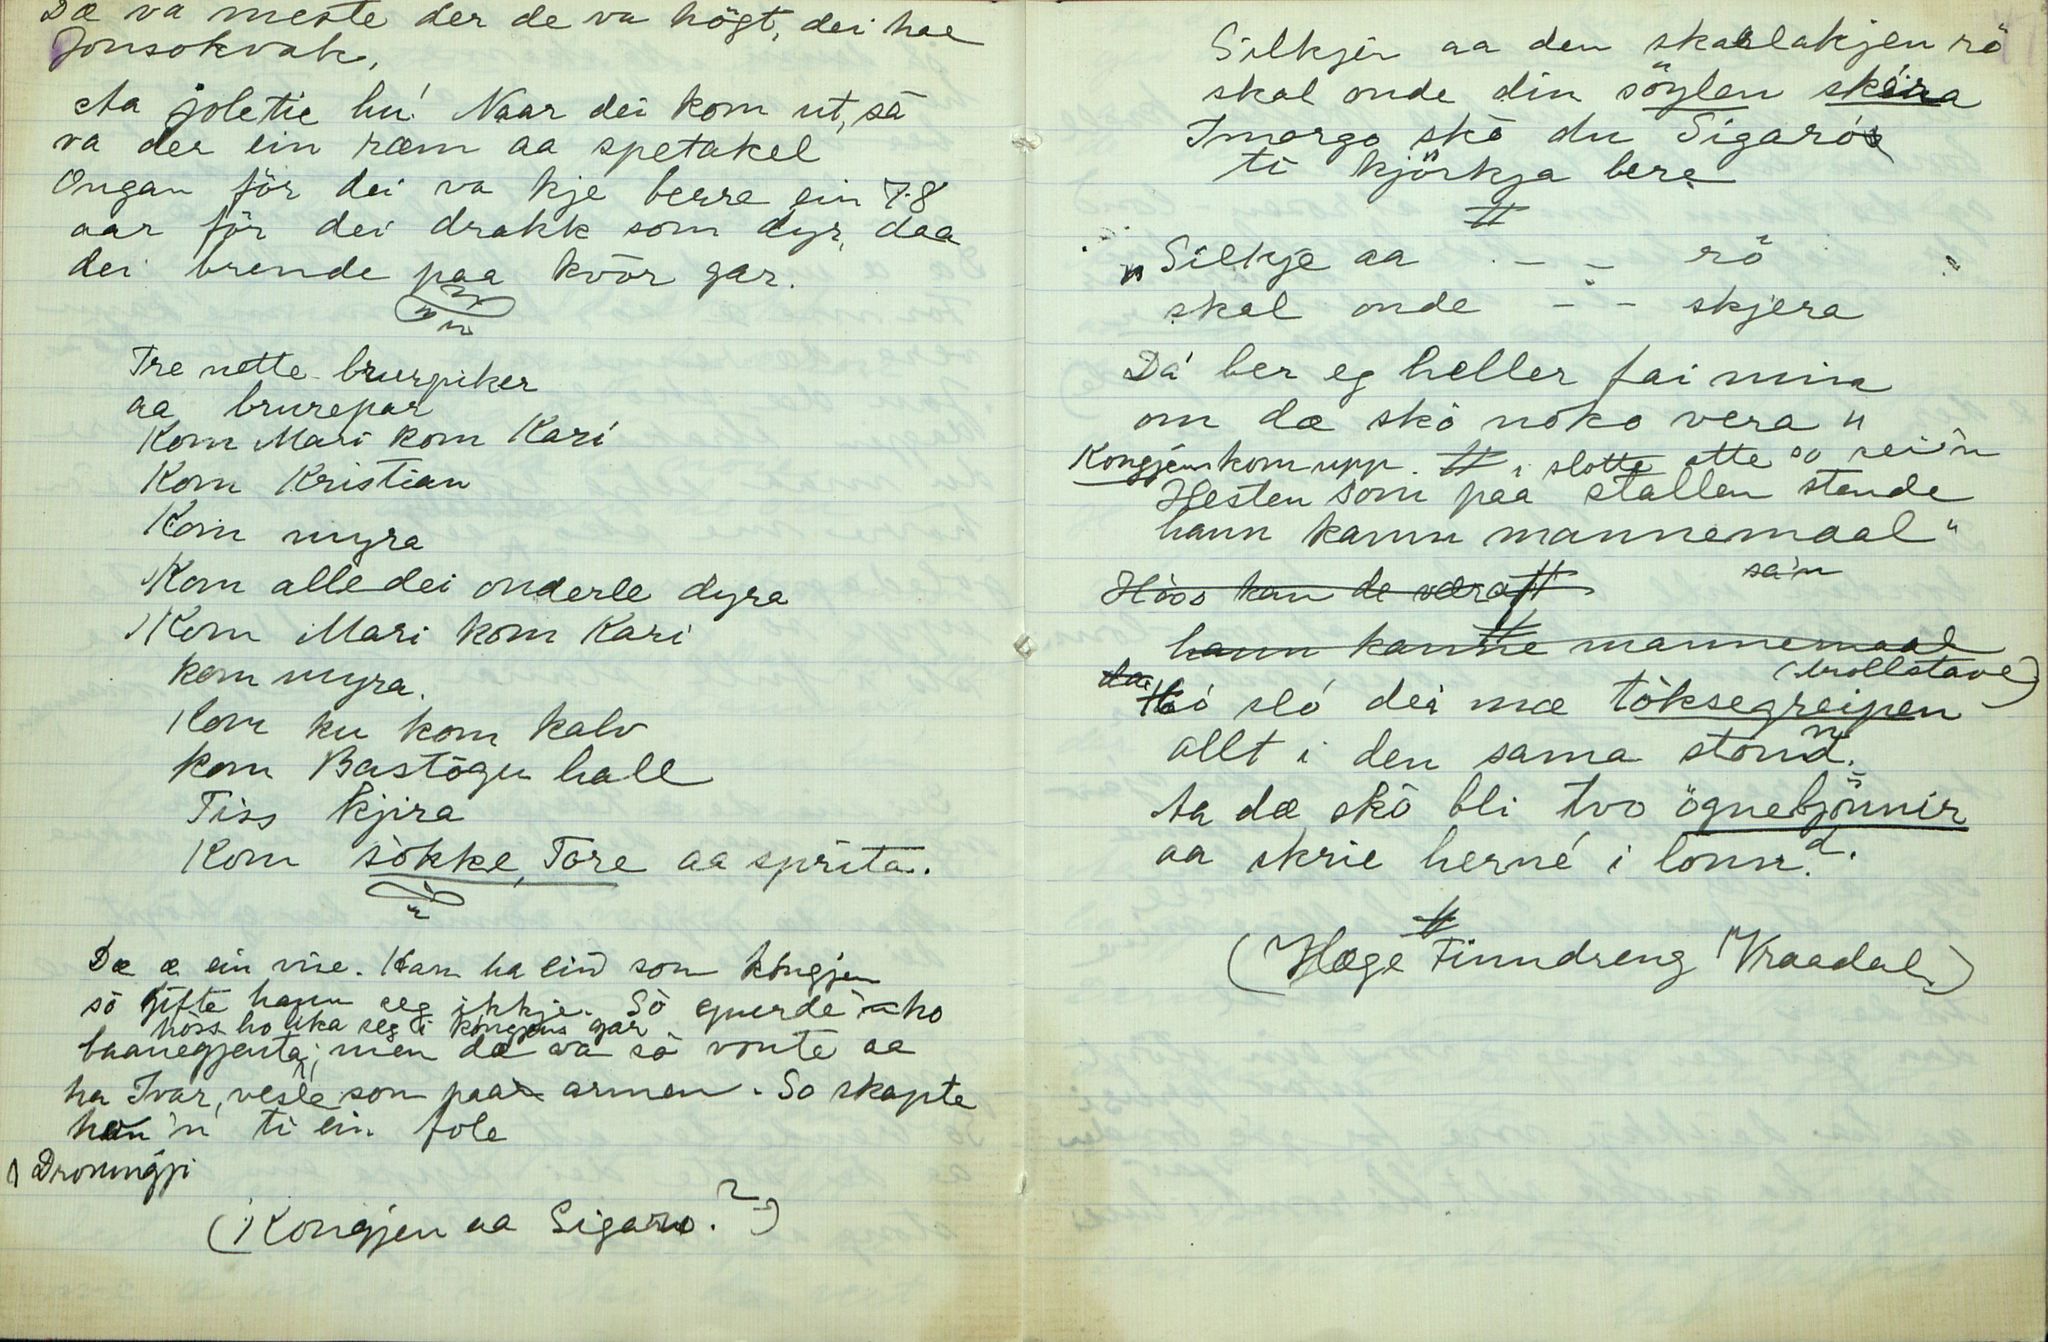 Dæ va meste der de va högt, dei hae
Jonsokvak.
Aa joletie hú! Naar dei kom ut, så
va der ein ræm aa spetakel
Ongan för dei va kje berre ein 7-8
aar för dei drakk som dyr, daa
dei brende paa kvör gar.
Tre nette brurpiker
aa brurepar
Kom Mari kom Kari
Kom Kristian
Kom myra
Kom alle dei onderle dyra
Kom Mari kom Kari
kom myra.
Kom ku kom kalv
kom Bastögu hall
Tiss kjira
Kom sökke, Tore aa sprita.
Dæ æ ein vise. Han ha ein som kongjen
sö gifte hann seg ikkje. Sö spurde ho
höss ho lika seg i kongens gar
baanegjenta; men dæ va så vonte aa
ha Ivar, vesle son paa armen. So skapte
hon'n ti ein fole
Droningji
(Kongjen aa Sigaro.?)
Silkjer aa den skarlakjen rö
skal onde din söylen skéra
Imorgo skö du Sigaró
ti kjörkja bera
"Silkje aa - - - rö
skal onde - - - skjera
Dá ber eg heller fai mina
om dæ skö noko vera"
Kongjen kom upp. i slotte atte so rei'n
Hesten som paa stallen stende
hann kann mannemaal"
sa'n
Höss kan de væra
hann kanne mannemaal
(trollstave)
da
Hó sló dei mæ töksegreipen
allt i den sama stond.
Aa dæ skö bli tvo ögnebjönnir
aa skrie herné i lönnd.
(Hæge Finndreng Vraadal.)